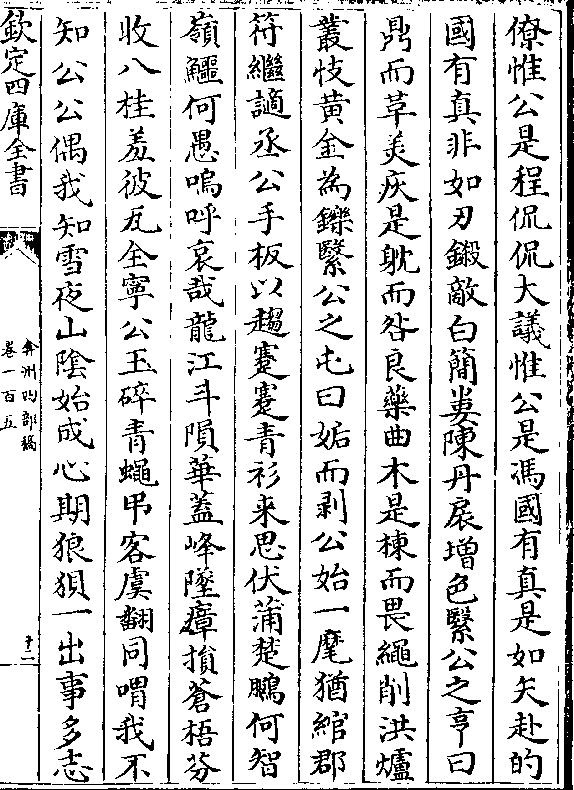 僚惟公是程侃侃大議惟公是馮國有真是如矢赴的
國有真非如刃鍛敵白簡婁陳丹扆增色繄公之亨曰
鼎而草美疢是躭而咎良藥曲木是棟而畏繩削洪爐
叢忮黄金為鑠繄公之屯曰姤而剥公始一麾猶綰郡
符繼謫丞公手板以趨蹇蹇青衫来思伏蒲楚鵩何智
嶺鱷何愚嗚呼哀哉龍江斗隕華蓋峰墜瘴損蒼梧芬
收八桂羞彼瓦全寧公玉碎青蠅弔客虞翻同喟我不
知公公偶我知雪夜山陰始成心期狼狽一出事多志
欽定四庫全書
弇州四部稿
卷一百五
十二